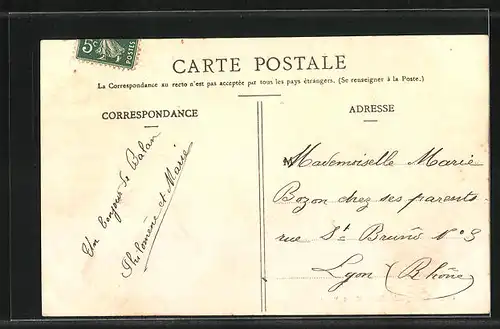 5c
POSTES
CARTE POSTALE
La Correspondance au recto n'est pas acceptée par tous les pays étrangers. (Se renseigner à la Poste.)
CORRESPONDANCE
Un bonjour de Balan
Philomène et Marie
ADRESSE
Mademoiselle Marie
Bozon chez ses parents
rue St Bruno N°3
Lyon (Rhône)